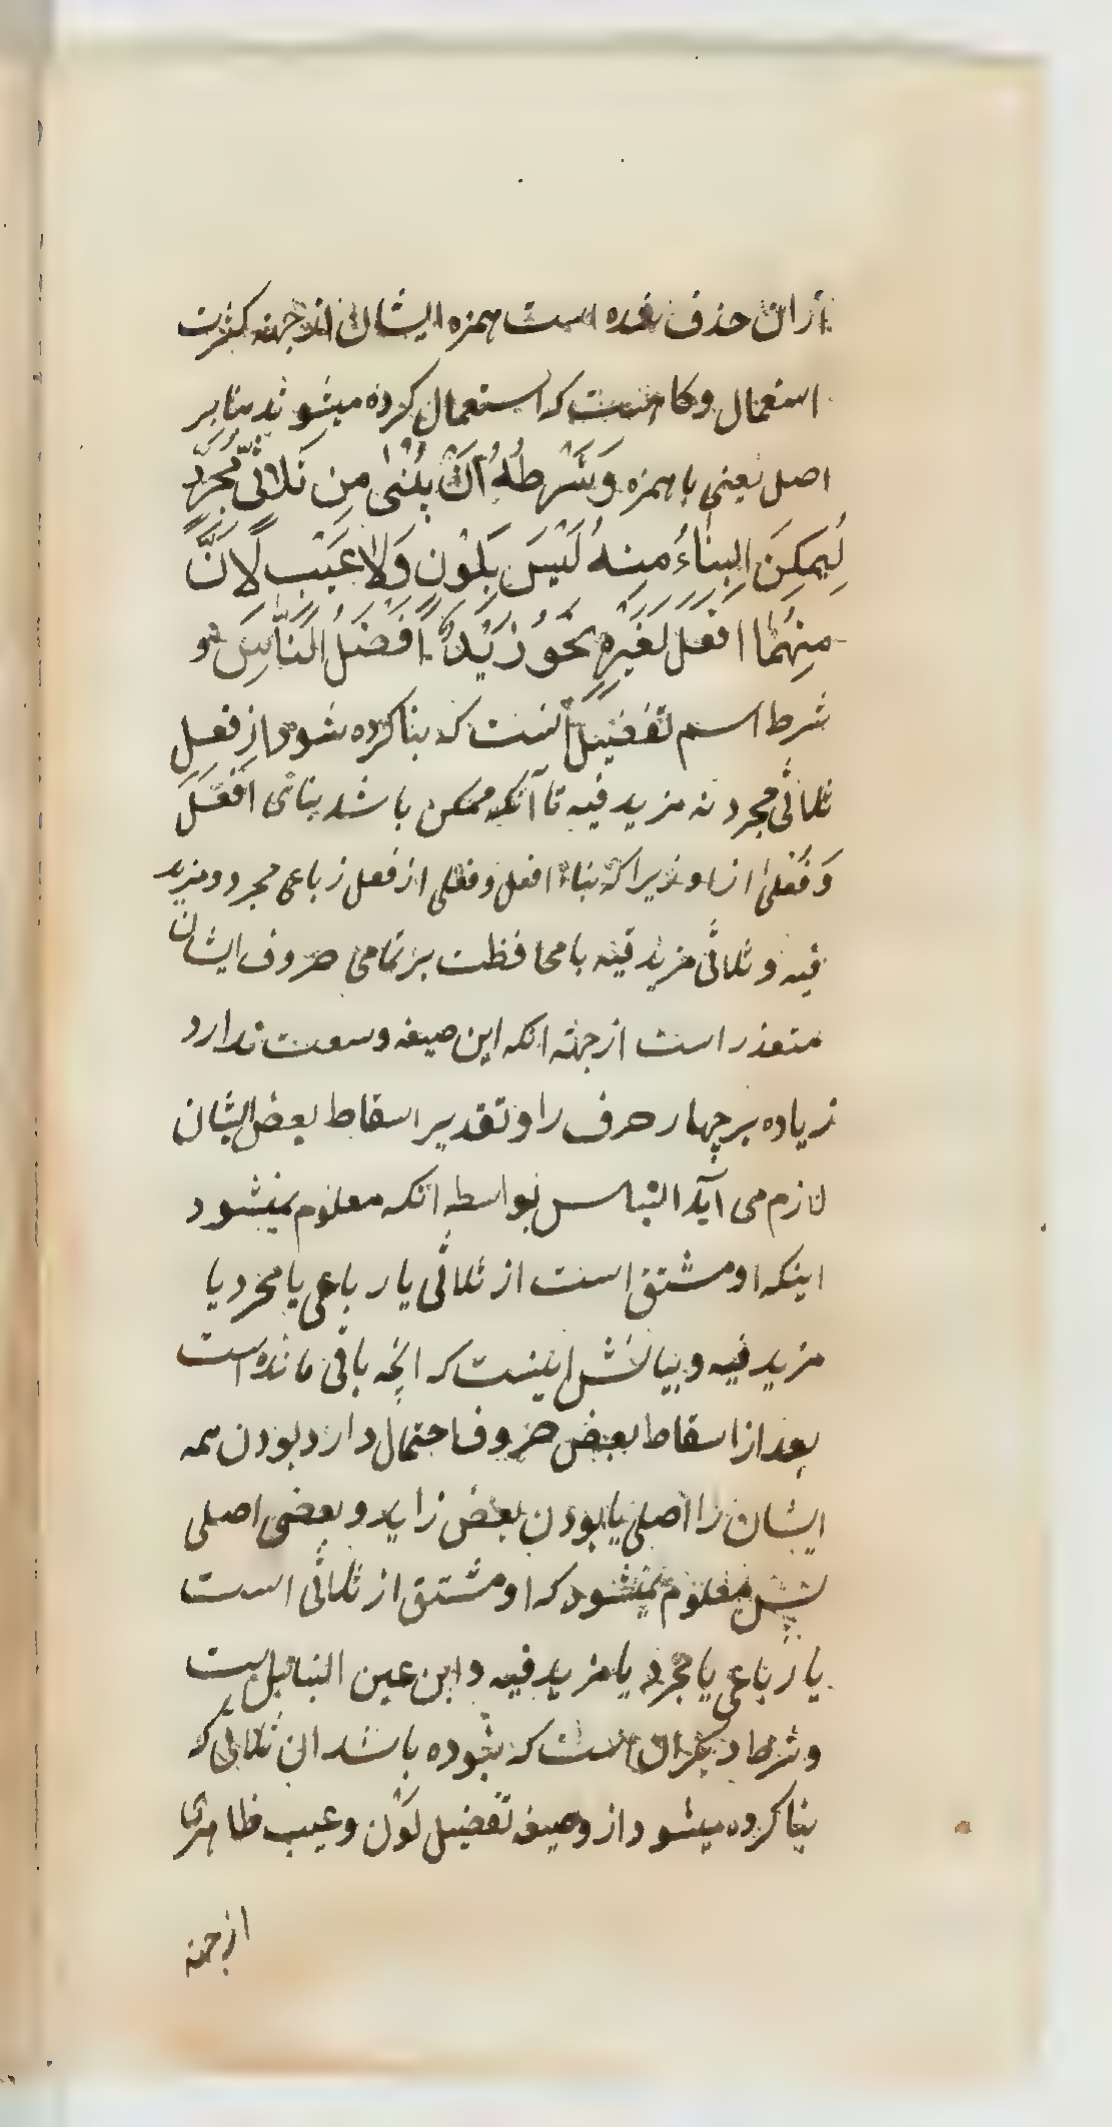 ازان حذف شده است همزه ایشان از جهته کثرت
استعمال و کاه هست که استعمال کرده میشوند بنابر
اصل یعنی با همزه وَشَرْطُهُ اَنْ یُبْنٰی مِن ثَلاثِیٍّ مُجَرَّدٍ
لِیُمکِنَ البِنٰاءُ مِنهُ لَیْسَ بِلَوْنٍ وَلاٰ عَیْبٍ لِاَنَّ
مِنهُمٰا اَفْعَلَ لِغَیْرِهِ نَحوُ زَیْدٌ اَفْضَلُ النّٰاسِ و
شرط اسم تفضیل آنست که بنا کرده شود از فعل
ثلاثی مجرد نه مزید فیه تا آنکه ممکن باشد بنای اَفْعَلَ
وَ فُعْلیٰ ازاو زیرا که بناء افعل و فعلی از فعل رباعی مجرد و مزید
فیه و ثلاثی مزید فیه با محافظت بر تمامی حروف ایشان
متعذر است از جهته انکه این صیغه وسعت ندارد
زیاده بر چهار حرف را و تقدیر اسقاط بعض ایشان
لازم می آید التباس بواسطه انکه معلوم نمیشود
اینکه او مشتق است از ثلاثی یا رباعی یا مجرد یا
مزید فیه و بیانش اینست که انچه باقی مانده است
بعد از اسقاط بعض حروف احتمال دارد بودن همه
ایشان را اصلی یا بودن بعض زاید و بعضی اصلی
پس معلوم نمیشود که او مشتق از ثلاثی است
یا رباعی یا مجرد یا مزید فیه و این عین التباس است
و شرط دیگر ان است که نبوده باشد ان ثلاثی که
بنا کرده میشود از و صیغه تفضیل لون و عیب ظاهری
از جهته